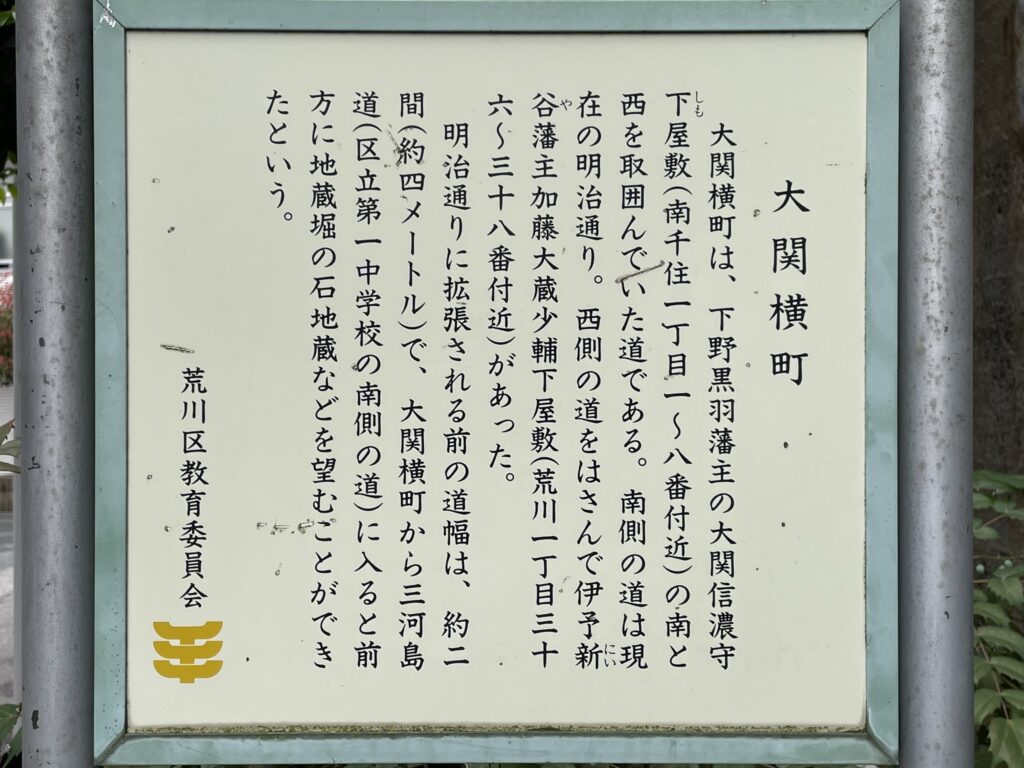 大関横町
大関横町は、下野黒羽藩主の大関信濃守
下屋敷(南千住一丁目一～八番付近)の南と
西を取囲んでいた道である。南側の道は現
在の明治通り。西側の道をはさんで伊予新
谷藩主加藤大蔵少輔下屋敷(荒川一丁目三十
六～三十八番付近)があった。
明治通りに拡張される前の道幅は、約二
間(約四メートル)で、大関横町から三河島
道(区立第一中学校の南側の道)に入ると前
方に地蔵堀の石地蔵などを望むことができ
たという。
荒川区教育委員会